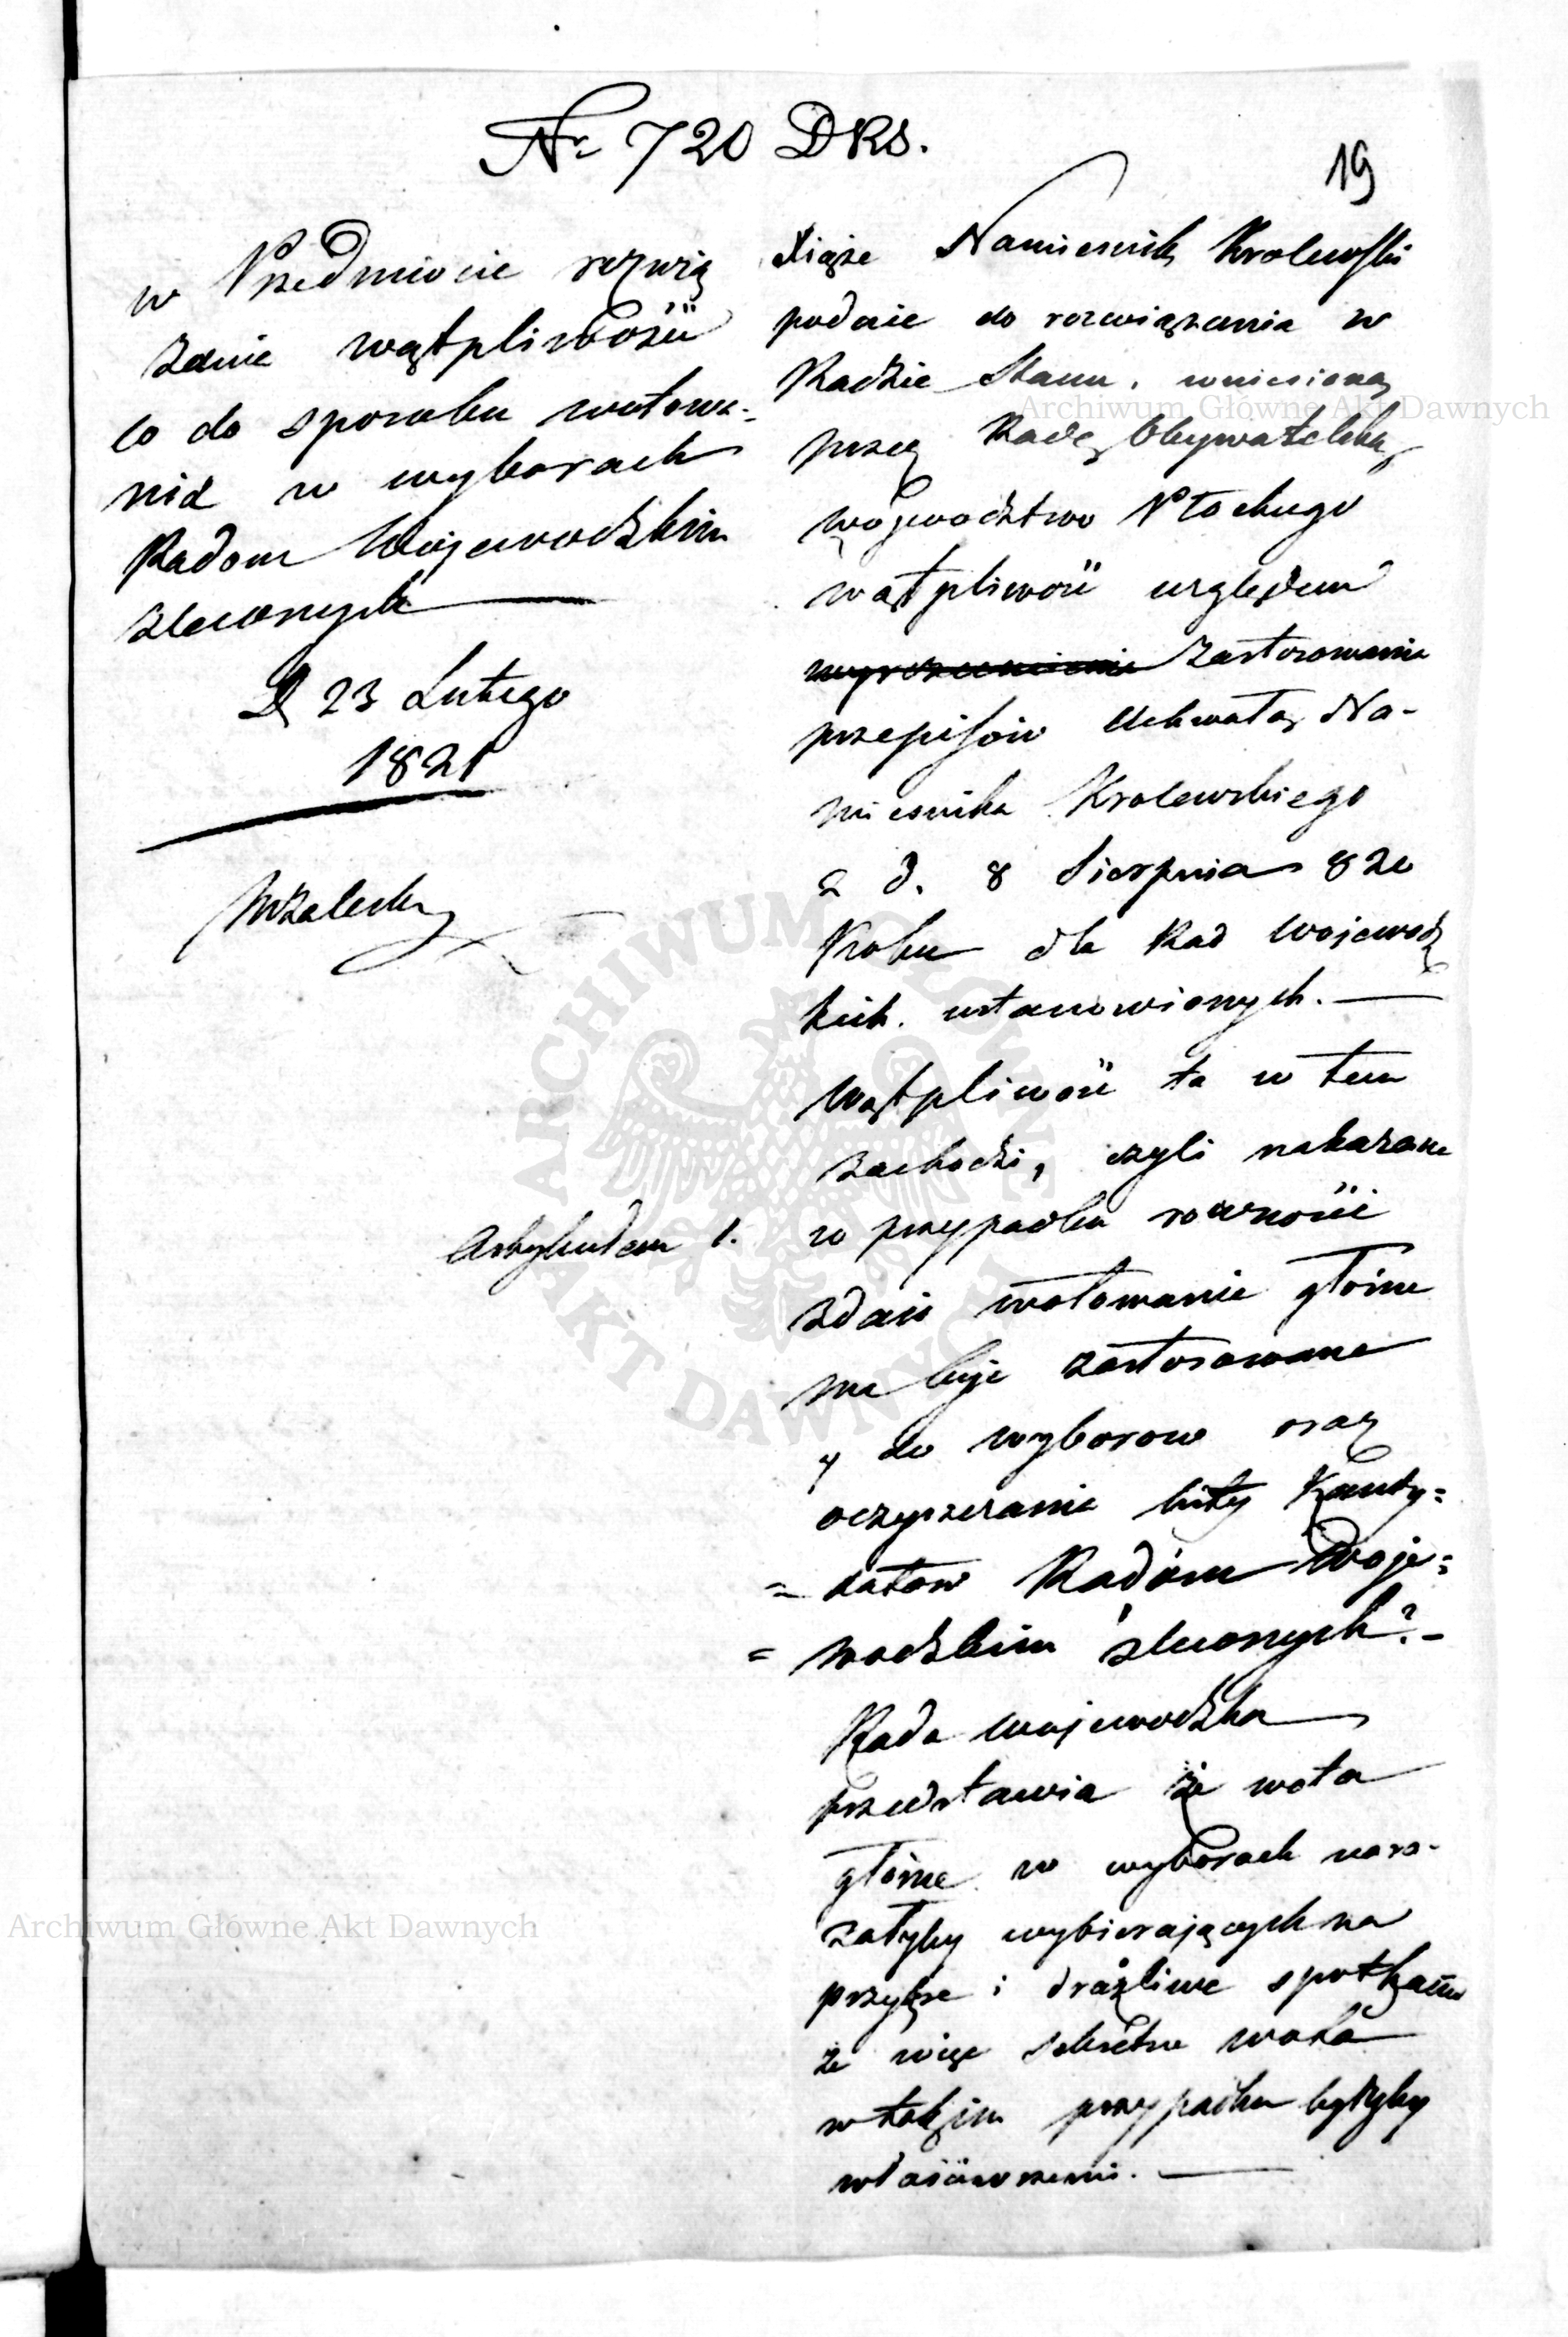 Nr 720 DRS.
19
w Przedmiocie rozwią
zania wątpliwości
co do sposobu wotowa-
nia w wyborach
Radom Wojewodzkim
zleconych
D 23 Lutego
1821
Xiąże Namiesnik Krolewski
podaie do rozwiązania w
Radzie Stanu, wniesioną
przez Radę Obywatelską
Wojewodztwa Płockiego
wątpliwość względem
zastosowania
przepisów Uchwałą Na-
miesnika Krolewskiego
z d. 8 Sierpnia 820
Roku dla Rad Wojewodz
kich ustanowionych.
Wątpliwość ta w tem
zachodzi, czyli nakazane
Artykułem 1.
w przypadku rowności
zdań wotowanie głośne
ma być zastosowane
y do wyborow oraz
oczyszczania listy Kandy=
=datow Radóm Woje=
=wodzkim zleconych?-
Rada Wojewodzka
przedstawia że wota
głośne w wyborach nara-
załyby wybierających na
przykre i drażliwe spotkania
że więc sekretne wota
w takim przypadku byłyby
właściwszemi.
Archiwum Główne Akt Dawnych
Archiwum Główne Akt Dawnych
ARCHIWUM GŁÓWNE
AKT DAWNYCH